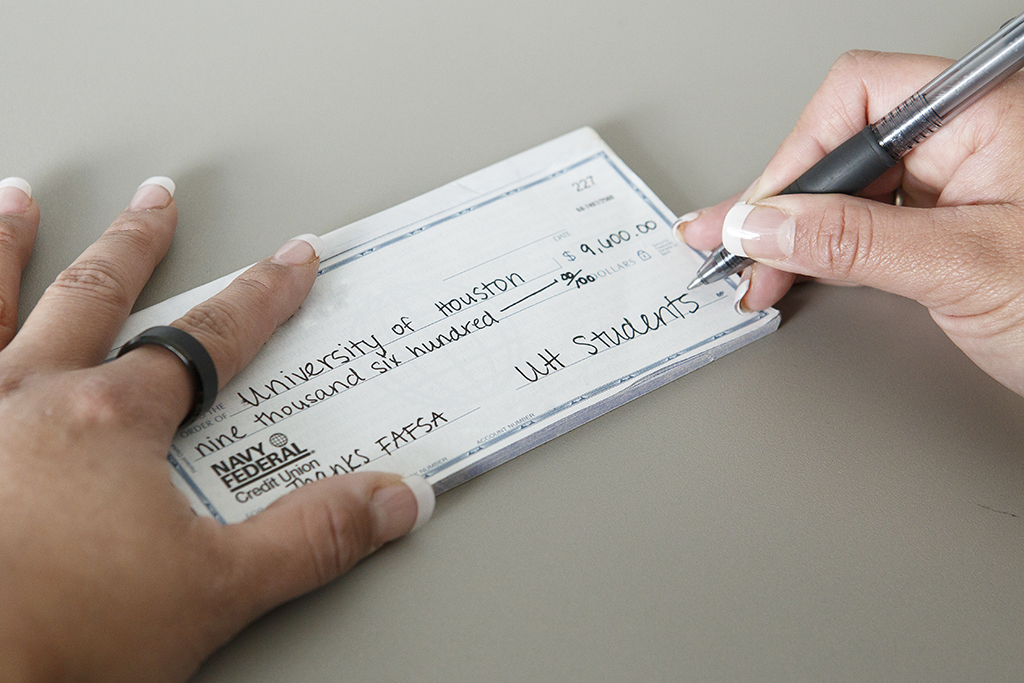 227
DATE
THE
ORDER OF University of Houston $ 9,600.00
nine thousand six hundred 00/00 DOLLARS
NAVY
FEDERAL
Credit Union
UH Students
Thanks FAFSA
NUMBER ACCOUNT NUMBER